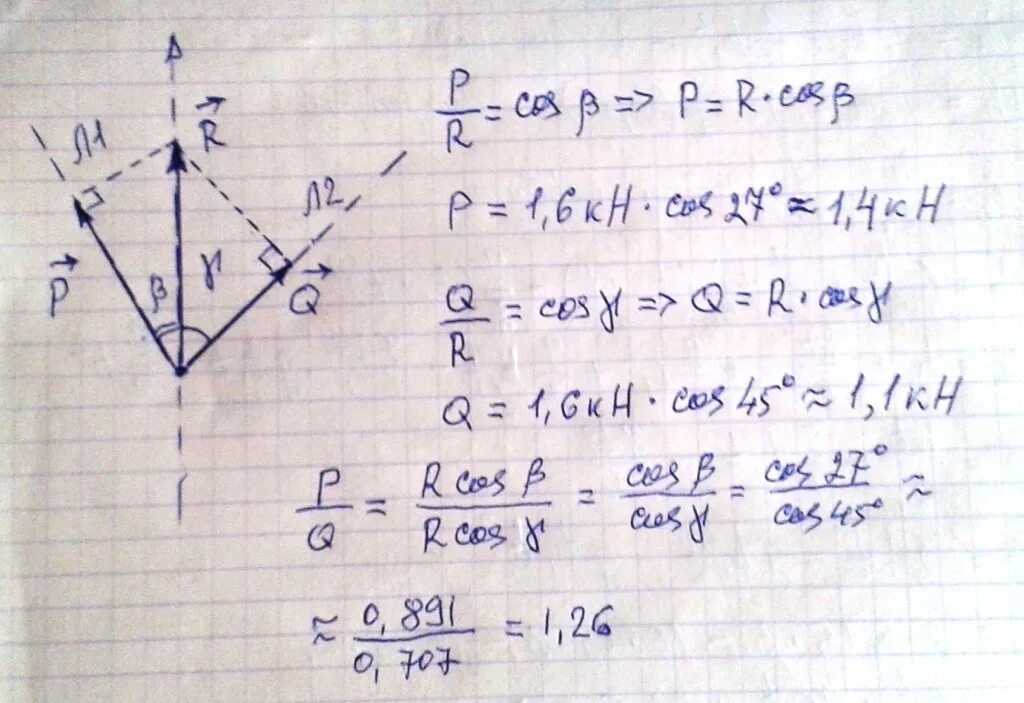 R
Л1
Л2
P
β
γ
Q
P/R = cos β => P = R · cos β
P = 1,6 кН · cos 27° ≈ 1,4 кН
Q/R = cos γ => Q = R · cos γ
Q = 1,6 кН · cos 45° ≈ 1,1 кН
P/Q = R cos β / R cos γ = cos β / cos γ = cos 27° / cos 45° ≈
≈ 0,891 / 0,707 = 1,26